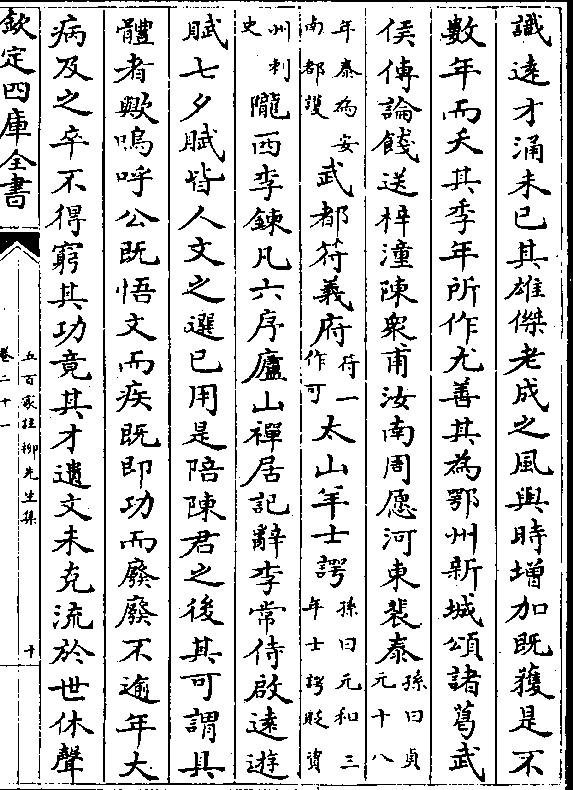 識逺才涌未已其雄傑老成之風與時増加既獲是不
數年而夭其季年所作尤善其為鄂州新城頌諸葛武
侯傳論餞送梓潼陳衆甫汝南周愿河東裴泰孫曰貞元十八
年泰為安南都護武都符義府符一作可太山羊士諤孫曰元和三年士諤貶資
州刺史隴西李鍊凡六序廬山禪居記辭李常侍啟逺遊
賦七夕賦皆人文之選已用是陪陳君之後其可謂具
體者歟嗚呼公既悟文而疾既即功而廢廢不逾年大
病及之卒不得窮其功竟其才遺文未克流於世休聲
欽定四庫全書
卷二十一
五百家註柳先生集
十